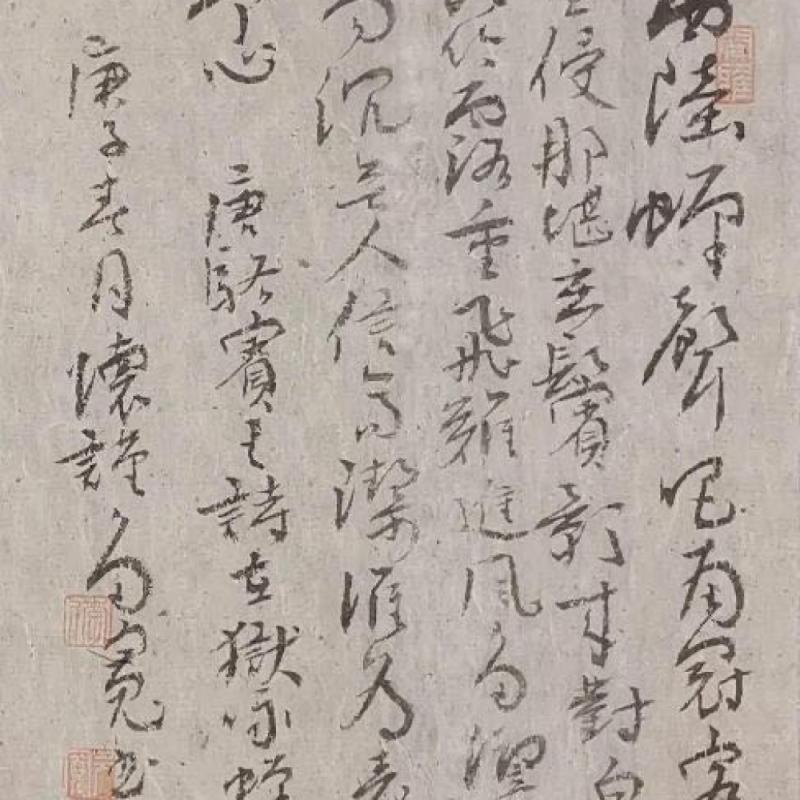 西陸蟬聲唱南冠客
侵那堪玄鬢影來對白
吟露重飛難進風多響
易沉無人信高潔誰為表
予心 唐駱賓王詩在獄詠蟬
庚子春月懷謹
書